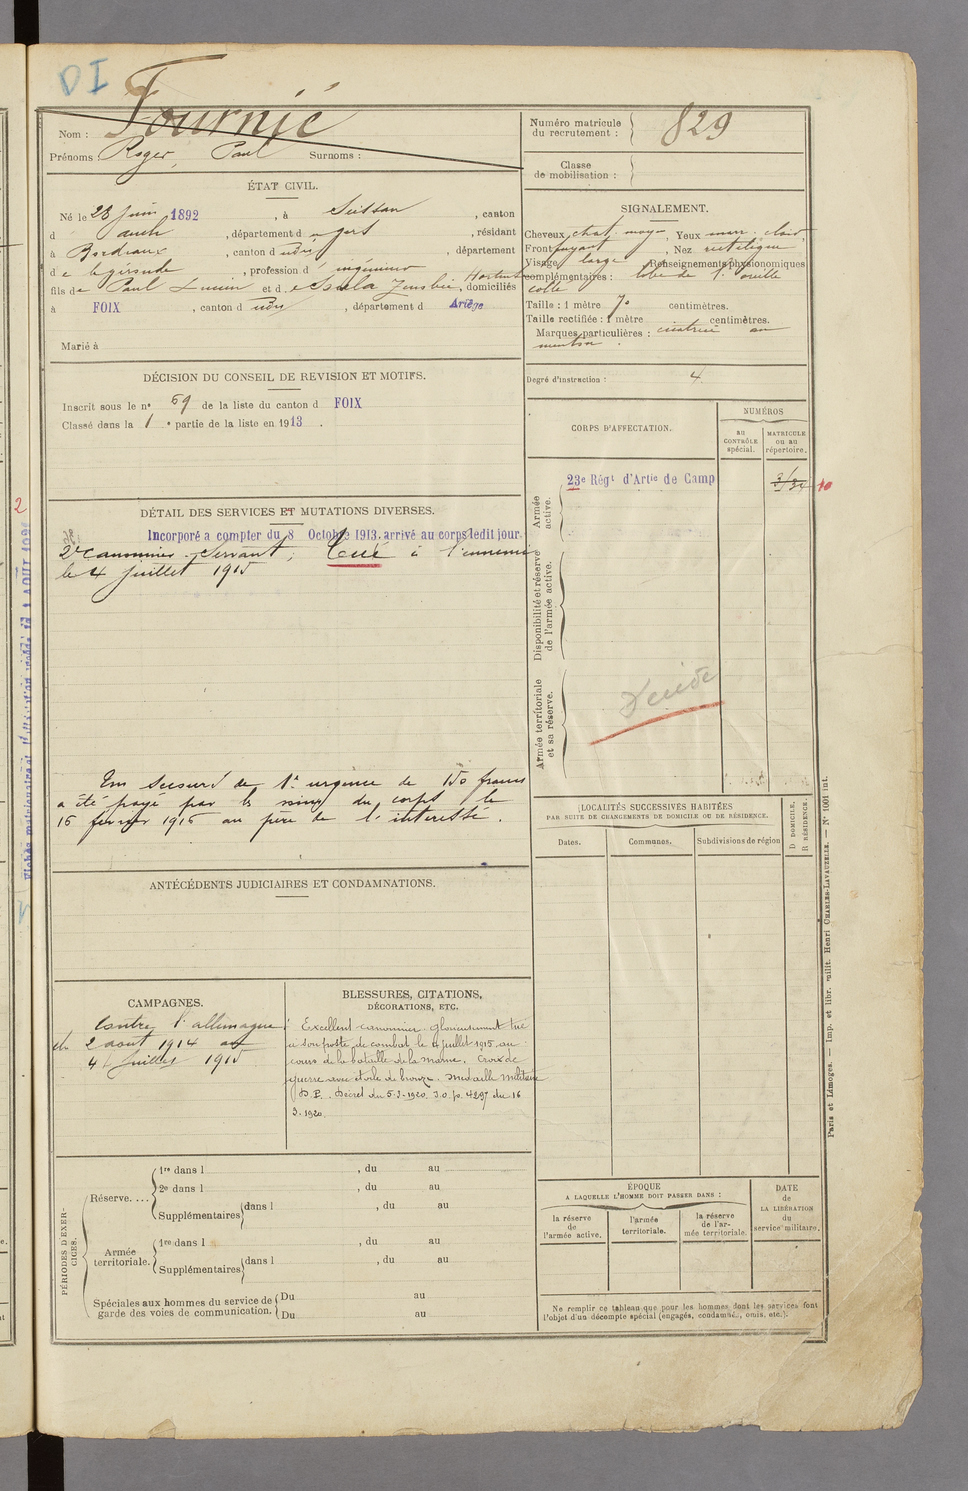 DI
Nom : Fournié
Prénoms : Roger, Paul Surnoms :
Numéro matricule du recrutement : 829
Classe de mobilisation :
ÉTAT CIVIL.
Né le 28 juin 1892, à Seissan, canton
d'auch, département du gers, résidant
à Bordeaux, canton dudit, département
de la gironde, profession d'ingénieur
fils de Paul et d Hortense, domiciliés
à FOIX, canton dudit, département d Ariège
Marié à
SIGNALEMENT.
Cheveux chat. moyen, Yeux marr. clair,
Front fuyant, Nez rectiligne
Visage large Renseignements physionomiques
complémentaires : lobe de l'oreille
collé
Taille : 1 mètre 70 centimètres.
Taille rectifiée : 1 mètre centimètres.
Marques particulières : cicatrice au
menton.
Degré d'instruction : 4
DÉCISION DU CONSEIL DE REVISION ET MOTIFS.
Inscrit sous le n° 69 de la liste du canton d FOIX
Classé dans la 1e partie de la liste en 1913.
CORPS D'AFFECTATION.
NUMÉROS
au CONTRÔLE spécial.
MATRICULE ou au répertoire.
Armée active.
23e Régt d'Artie de Camp
Disponibilité et réserve de l'armée active.
Armée territoriale et sa réserve.
Décédé
DÉTAIL DES SERVICES ET MUTATIONS DIVERSES.
Incorporé a compter du 8 Octobre 1913, arrivé au corps ledit jour.
2e Canonnier Servant, Tué à l'ennemi
le 4 juillet 1915
Un secours de 1e urgence de 150 francs
a été payé par les soins du corps le
16 février 1916 au père de l'intéressé.
LOCALITÉS SUCCESSIVES HABITÉES
PAR SUITE DE CHANGEMENTS DE DOMICILE OU DE RÉSIDENCE.
Dates.
Communes.
Subdivisions de région
D DOMICILE.
R RÉSIDENCE.
ANTÉCÉDENTS JUDICIAIRES ET CONDAMNATIONS.
CAMPAGNES.
Contre l'allemagne
du 2 aout 1914 au
4 juillet 1915
BLESSURES, CITATIONS,
DÉCORATIONS, ETC.
Excellent canonnier glorieusement tué
à son poste de combat le 4 juillet 1915 au
cours de la bataille de la marne. Croix de
guerre avec étoile de bronze. Médaille militaire
Décret du 5-3-1920. J.O. p. 4297 du 16
3-1920.
PÉRIODES D'EXERCICES.
Réserve....
1re dans l , du au
2e dans l , du au
Supplémentaires dans l , du au
Armée territoriale.
1re dans l , du au
Supplémentaires dans l , du au
Spéciales aux hommes du service de garde des voies de communication.
Du au
Du au
ÉPOQUE
A LAQUELLE L'HOMME DOIT PASSER DANS :
la réserve de l'armée active.
l'armée territoriale.
la réserve de l'armée territoriale.
DATE de LA LIBÉRATION du service militaire.
Ne remplir ce tableau que pour les hommes dont les services font
l'objet d'un décompte spécial (engagés, condamnés, omis, etc.).
Paris et Limoges. — Imp. et libr. milit. Henri CHARLES-LAVAUZELLE. — N° 1001 int.